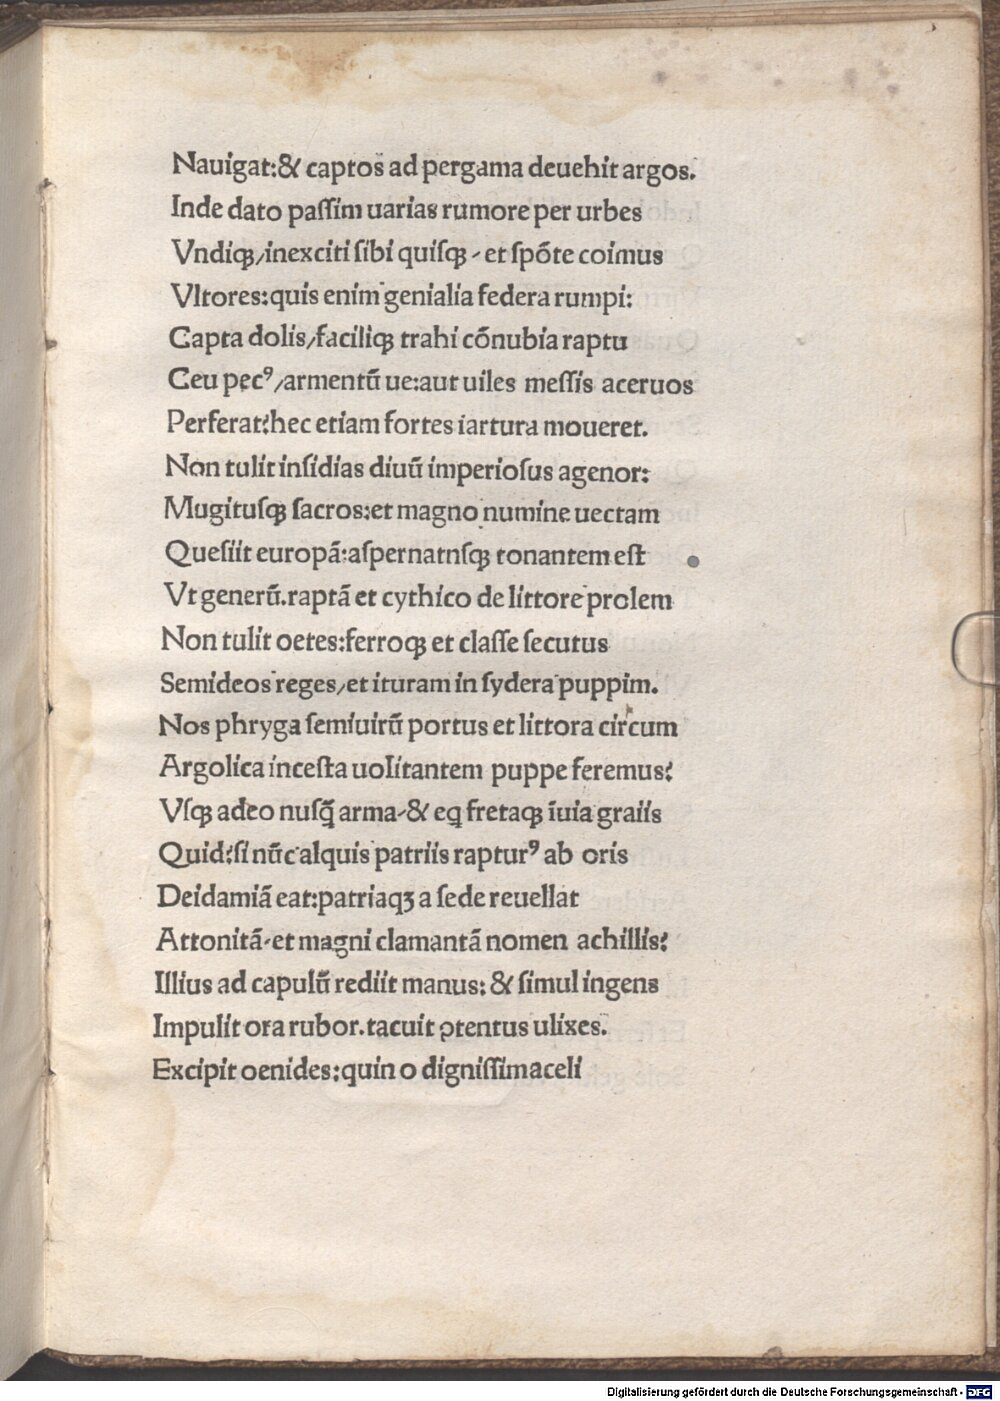 Nauigat:& captos ad pergama deuehit argos.
Inde dato paſſim uarias rumore per urbes
Vndiqꝫ/inexciti ſibi quiſqꝫ - et ſpōte coimus
Vltores:quis enim genialia federa rumpi:
Capta dolis/faciliqꝫ trahi cōnubia raptu
Ceu pecꝰ/armentū ue:aut uiles meſſis aceruos
Perferat?hec etiam fortes iartura moueret.
Non tulit inſidias diuū imperioſus agenor:
Mugituſqꝫ ſacros:et magno numine uectam
Queſiit europā:aſpernatnſqꝫ tonantem eſt
Vt generū.raptā et cythico de littore prolem
Non tulit oetes:ferroqꝫ et claſſe ſecutus
Semideos reges/et ituram in ſydera puppim.
Nos phryga ſemiuirū portus et littora circum
Argolica inceſta uolitantem puppe feremus?
Vſqꝫ adeo nuſq̄ arma-& eq̨ fretaqꝫ īuia graiis
Quid?ſi nūc alquis patriis rapturꝰ ab oris
Deidamiā eat:patriaqꝫ a ſede reuellat
Attonitā-et magni clamantā nomen achillis?
Illius ad capulū rediit manus: & ſimul ingens
Impulit ora rubor.tacuit ꝯtentus ulixes.
Excipit oenides:quin o digniſſima celi
Digitalisierung gefördert durch die Deutsche Forschungsgemeinschaft - DFG